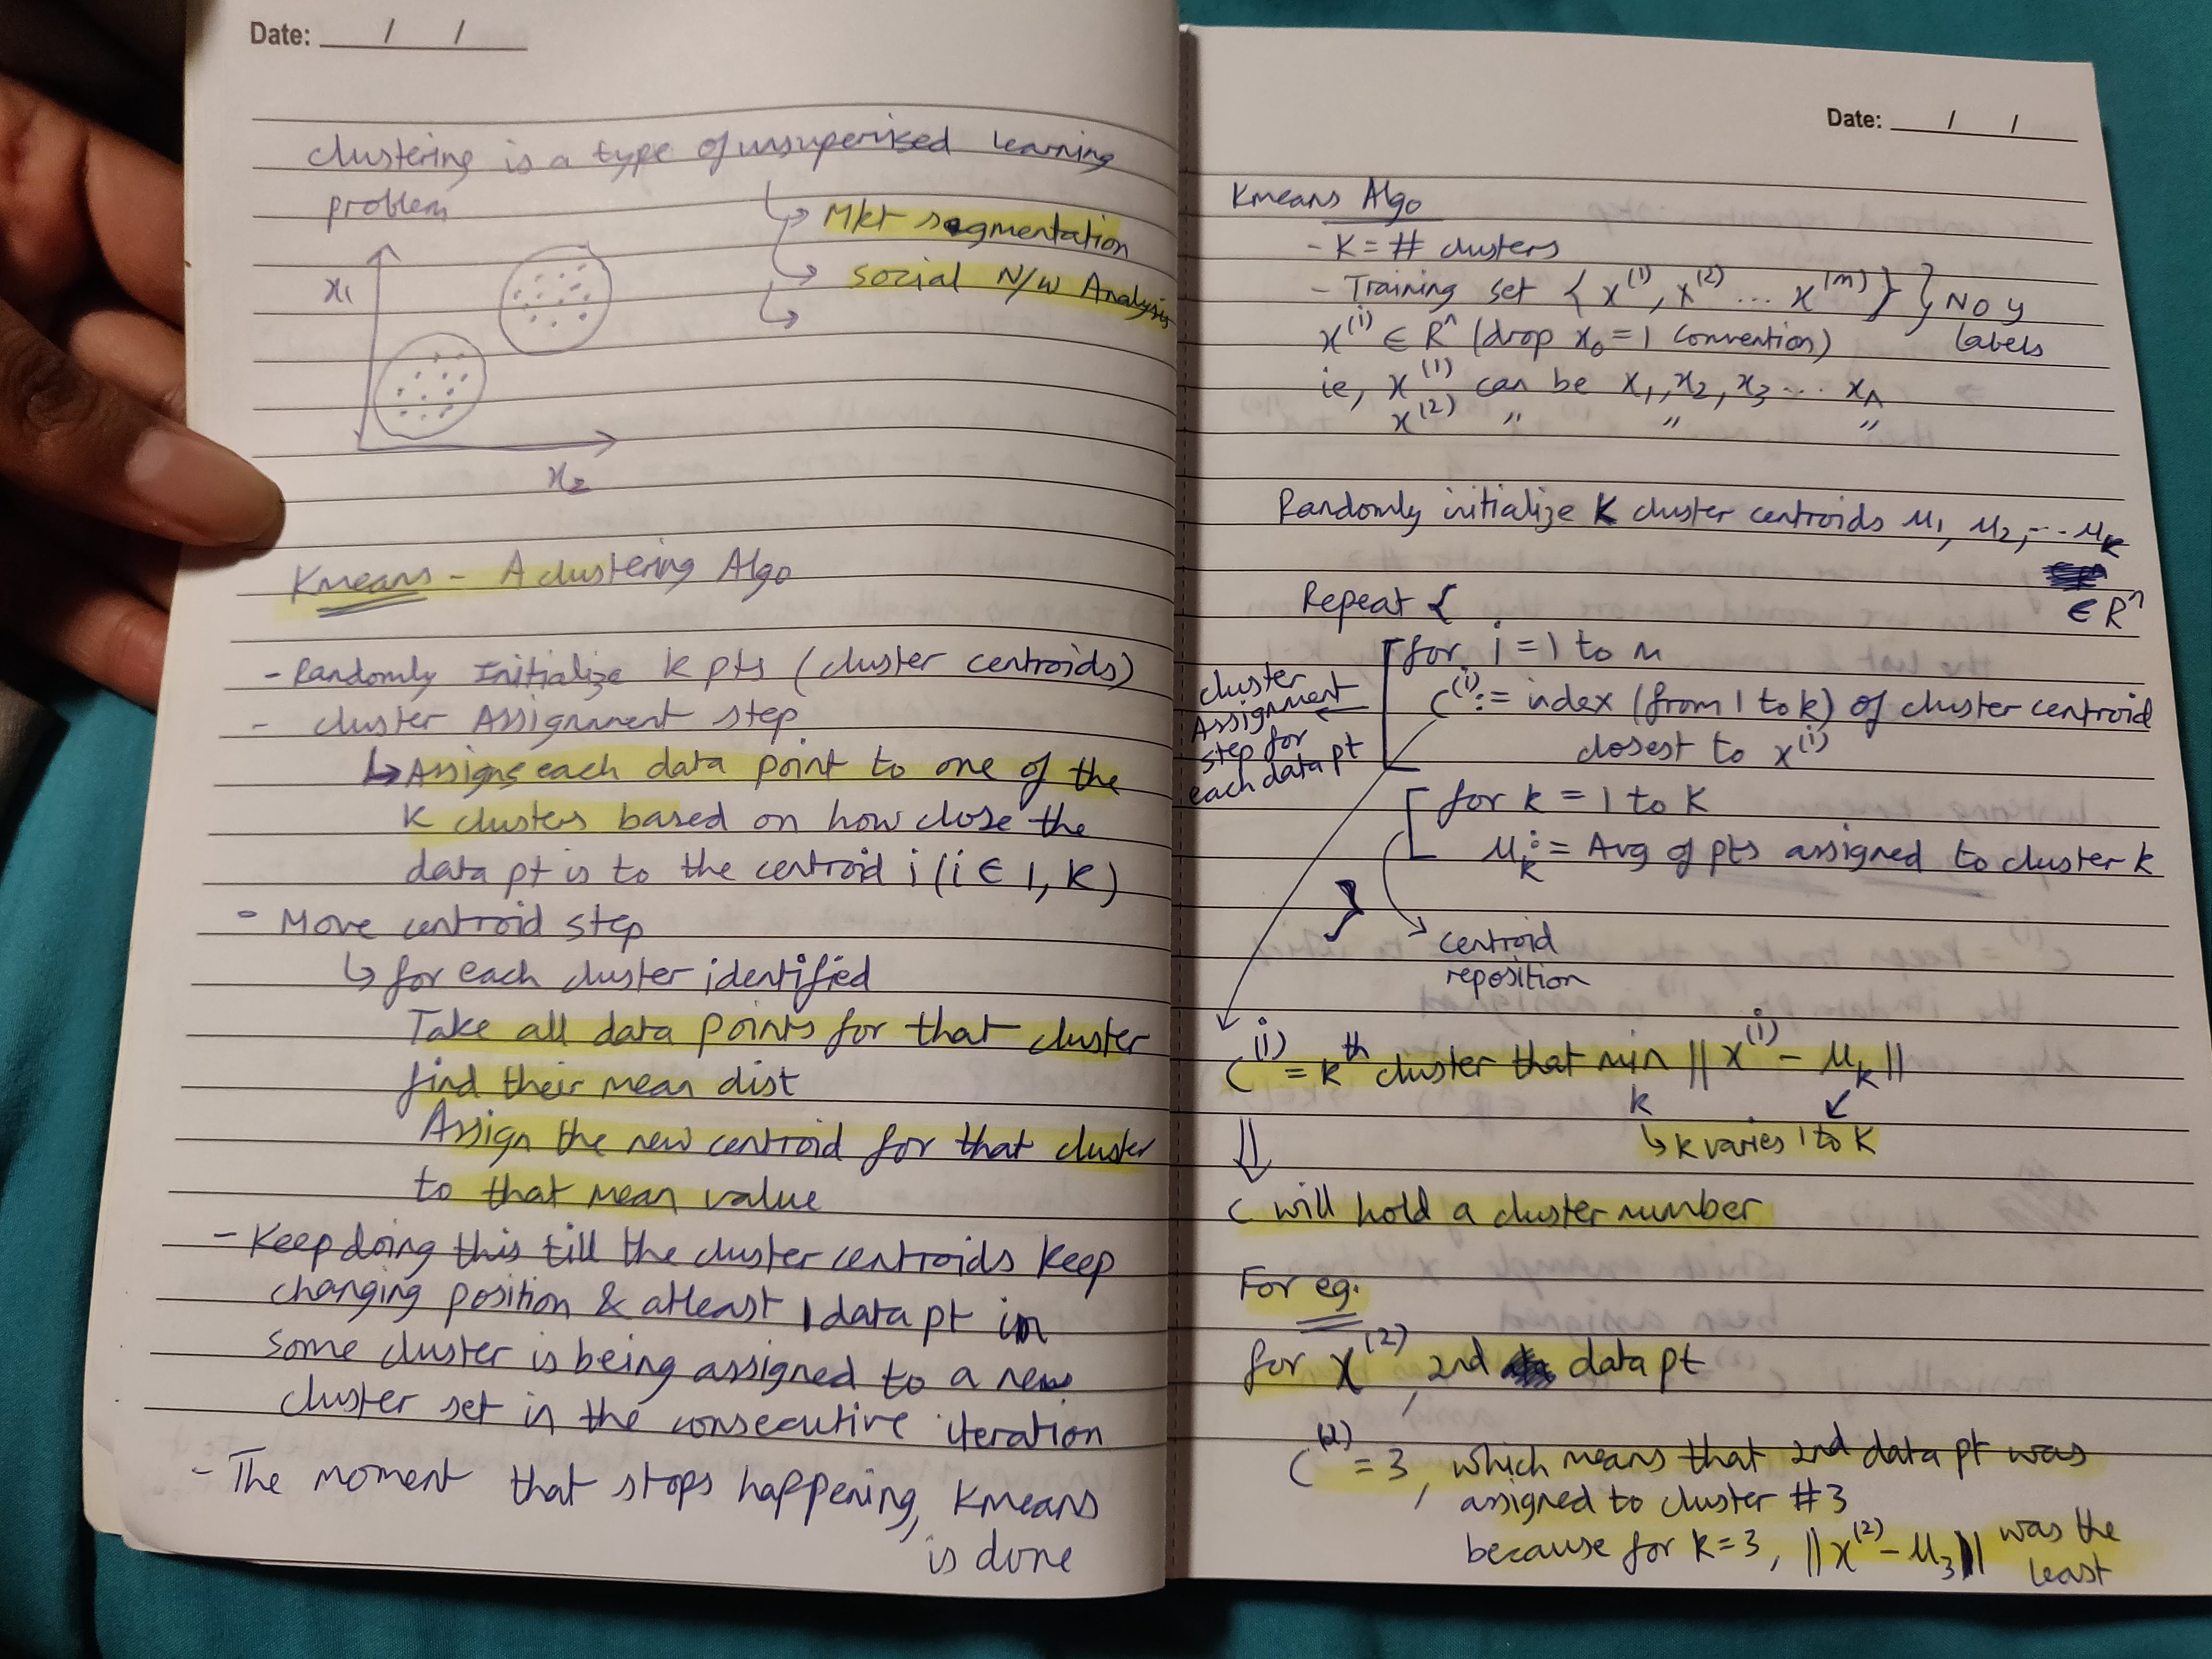 Date: / /
clustering is a type of unsupervised learning
problem
↳ Mkt segmentation
↳ social N/w Analysis
↳
x₁
x₂
Kmeans - A clustering Algo
- Randomly Initialize k pts (cluster centroids)
- cluster Assignment step
↳ Assigns each data point to one of the
K clusters based on how close the
data pt is to the centroid i (i ∈ 1, K)
- Move centroid step
↳ for each cluster identified
Take all data points for that cluster
find their mean dist
Assign the new centroid for that cluster
to that mean value
- Keep doing this till the cluster centroids keep
changing position & atleast 1 data pt in
some cluster is being assigned to a new
cluster set in the consecutive iteration
- The moment that stops happening, Kmeans
is done
Date: / /
Kmeans Algo
- K = # clusters
- Training set { x⁽¹⁾, x⁽²⁾ ... x⁽ᵐ⁾ } } No y
labels
x⁽ⁱ⁾ ∈ Rⁿ (drop x₀ = 1 convention)
ie, x⁽¹⁾ can be x₁, x₂, x₃ ... xₙ
x⁽²⁾ " " "
Randomly initialize K cluster centroids μ₁, μ₂, ... μ_K
∈ Rⁿ
Repeat {
for i = 1 to m
C⁽ⁱ⁾ := index (from 1 to k) of cluster centroid
closest to x⁽ⁱ⁾
cluster
Assignment ←
step for
each data pt
for k = 1 to K
μ_k := Avg of pts assigned to cluster k
}
centroid
reposition
C⁽ⁱ⁾ = kᵗʰ cluster that min || x⁽ⁱ⁾ - μ_k ||
k
↳ k varies 1 to K
⇓
C will hold a cluster number
For eg.
for x⁽²⁾, 2nd data pt
C⁽²⁾ = 3, which means that 2nd data pt was
assigned to cluster #3
because for k = 3, || x⁽²⁾ - μ₃ || was the
least